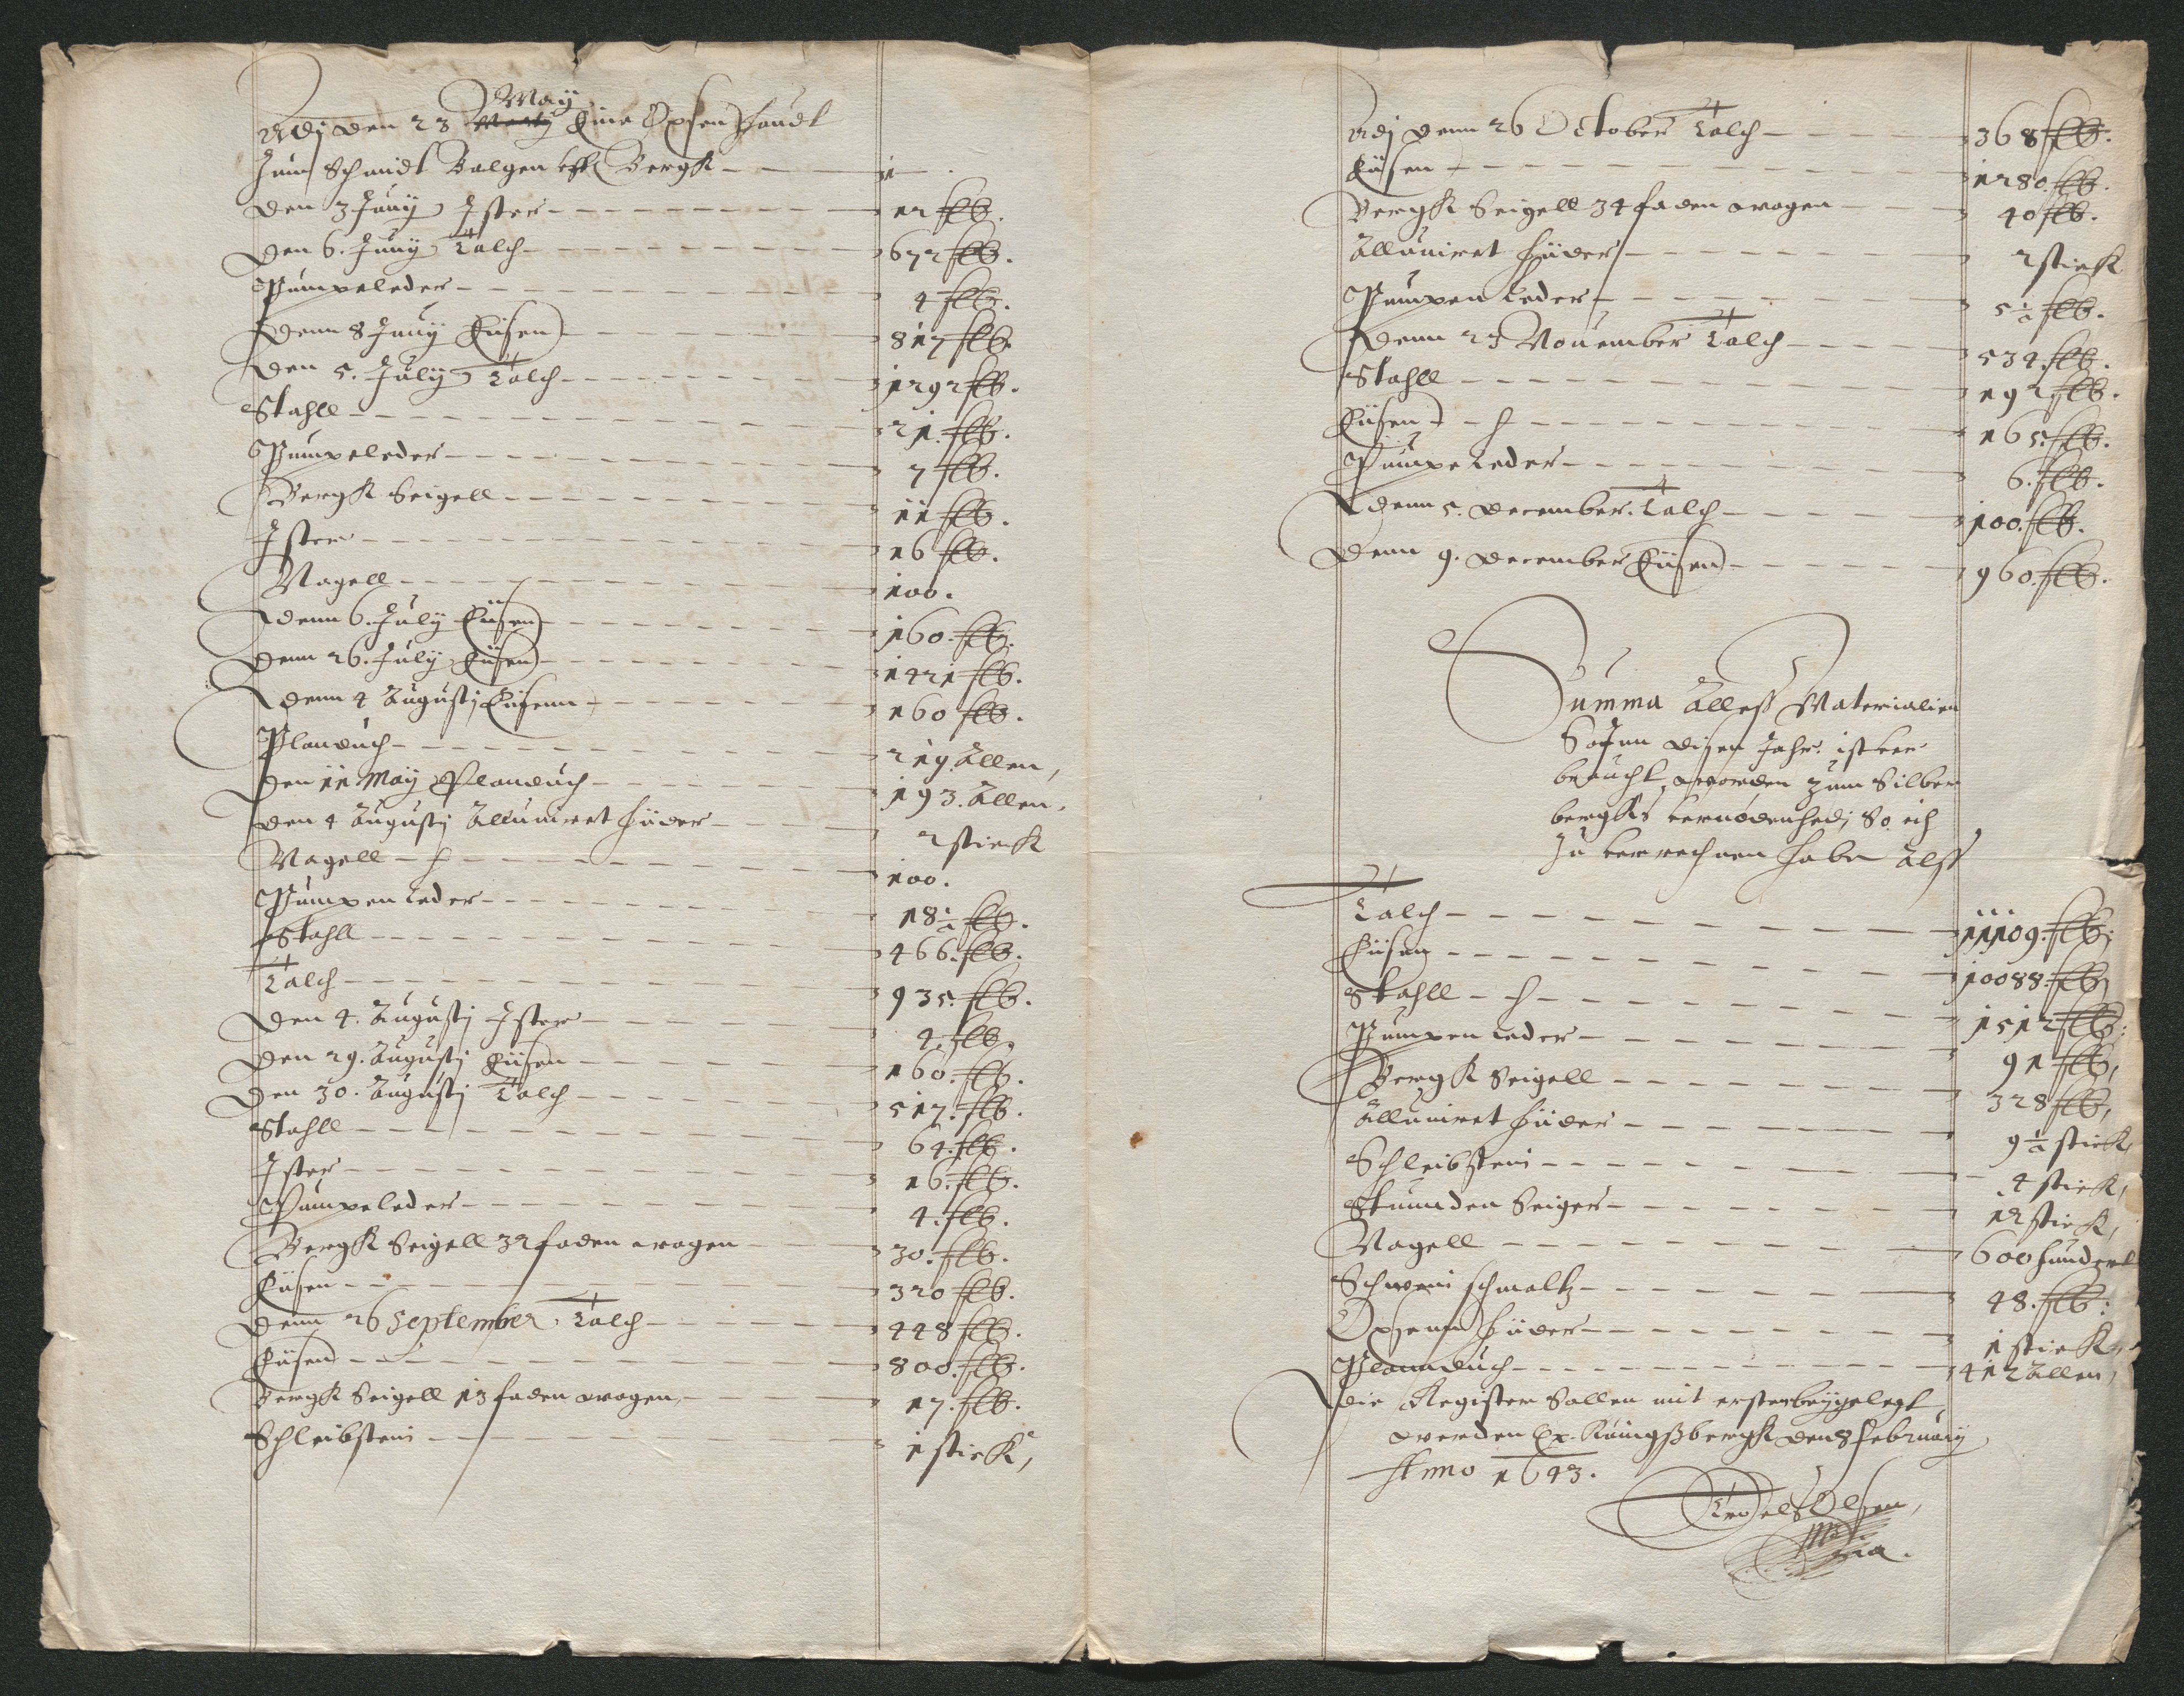 May
Adj den 23 Martj Eine Oxsen Haudt
Zum Schmidt Balgen Bergk 1
den 3 Juny Ister 12 ℔.
den 6. Juny Talch 672 ℔.
Pumpeleder 4 ℔.
denn 8 Juny Eüsen 817 ℔.
den 5. July Talch 1292 ℔.
Stahll 21 ℔.
Pumpeleder 7 ℔.
Bergk Seigell 11 ℔.
Ister 16 ℔.
Nagell 100.
denn 6. July Eüsen 160. ℔.
denn 26. July Eüsen 1421 ℔.
denn 4 Augustj Eüsenn 160 ℔.
Planduch 219. Allen,
den 11 May Planduch 193. Allen,
den 4 Augustj Alluniret Hüder 2 stick
Nagell 100.
Pumpen Leder 18 ½ ℔.
Stahll 466. ℔.
Talch 935. ℔.
den 4. Augustj Ister 4. ℔.
den 29. Augustj Eüsen 160. ℔.
den 30. Augustj Talch 517. ℔.
Stahll 64. ℔.
Ister 16. ℔.
Pumpeleder 4. ℔.
Bergk Seigell 32 faden wagen 30. ℔.
Eüsen 320 ℔.
denn 26 September Talch 448 ℔.
Eüsen 800. ℔.
Bergk Seigell 13 faden wagen, 17. ℔.
Schleibstein 1 stick,
Adj denn 26 October Talch 368 ℔.
Eüsen 1280. ℔.
Bergk Seigell 34 faden wagen 40 ℔.
Alluniret Hüder 2 stick
Pumpen Leder 5 ½ ℔.
denn 23 Nouember Talch 534. ℔.
Stahll 192. ℔.
Eüsen 165. ℔.
Pumpe Leder 6. ℔.
denn 5. December. Talch 100. ℔.
denn 9. December Eüsen 960. ℔.
Summa Alless Materialien
So Inn disen Jahr ist ver
braucht worden zum Silber
bergks vernödenhedj So ich
Zu verrechnen habe Alss
Talch 11109. ℔.
Eüsen 10088. ℔.
Stahll 1512 ℔.
Pumpen Leder 91 ℔,
Bergk Seigell 328 ℔,
Alluniret Hüder 9 ½ stick,
Schleibstein 4 stick,
Stunnden Seiger 12 stick,
Nagell 600 hundert
Schwein schmaltz 48. ℔.
Oxsenn Hüder 1 stick,
Planduch 412 Allen,
die Register Sollen mit ersten beygelegt
werden Ex. Küngßbergk den 8 February
Anno 1643.
Troels Olsen,